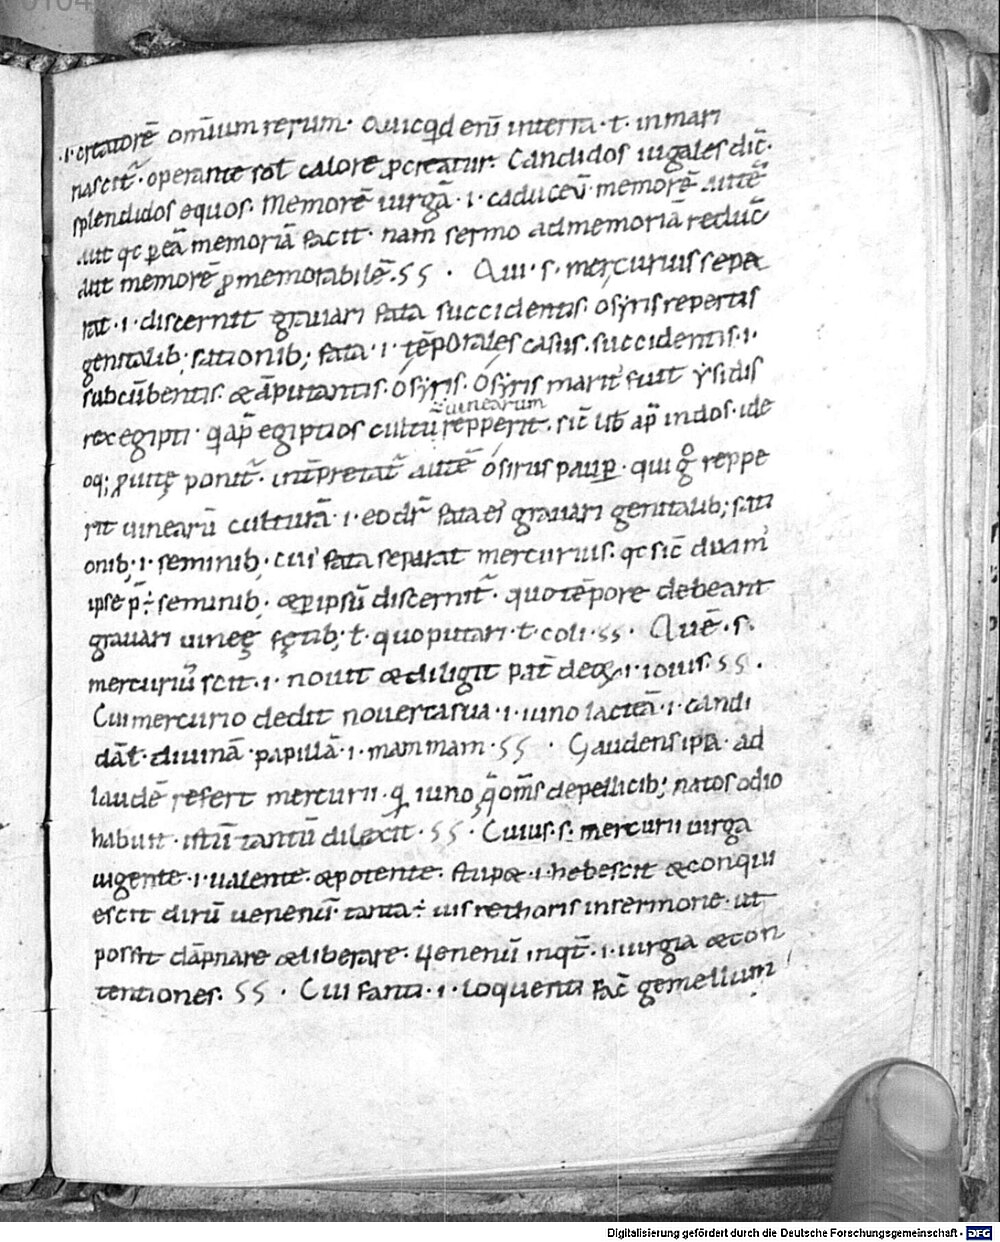 .i. creatorē om̄ium rerum. Quicq̄d enī interra .t. in mari
nascit᷑. operante sol calore ꝓcreatur. Candidos iugales dic̄.
splendidos equos. Memorē uirgā .i. caduceū memorē autē
aut qc ꝑ eā memoriā facit. nam sermo ad memoriā reduc̄
aut memorē ꝓ memorabilē. SS . Qui .s. mercurius sepa
rat .i. discernit grauari fata succidentis. osyris repertis
genitalib; sationib; fata .i. tēporales casus. succidentis .i.
subcūbentis. & āputantis. Osyris. Osyris marit᷒ fuit ysidis
rex egipti. q̄ ap̄ egiptios cultū uinearum repperit. sic̄ lib̄ ap̄ indos. ide
oq; ꝓ uite ponit᷑. int̄pretat᷑ autē osirus paup̱. qui g̊ reppe
rit uinearū culturā .i. eo dr̄ fata ei᷒ grauari genitalib; sati
onib; .i. seminib; cui᷒ fata separat mercurius. qc sic̄ duam᷒
ipse p̄ ÷ seminib; & ꝑ ipsū discernit᷑. quo tēpore debeant
grauari uineę fętib; t. quo putari .t. coli. SS . Quē .s.
mercuriū scit .i. nouit & diligit pat̄ deoꝝ .i. iouis. SS .
Cui mercurio dedit nouerca sua .i. iuno lacteā .i. candi
dā t. diuinā papillā .i. mammam. SS . Gaudens ipa. ad
laudē refert mercurii. q̄ iuno q̄ om̄s de pellicib; natos odio
habuit. istū tantū dilexit. SS . Cuius .s. mercurii uirga
uigente .i. ualente. & potente. stupet .i. hebescit & conqui
escit dirū uenenū. tanta ÷ uis rethoris in sermone. ut
possit dāpnare & liberare. Uenenū inq̄t .i. iurgia & con
tentiones. SS . Cui fanti .i. loquenti fac̄ gemellum
Digitalisierung gefördert durch die Deutsche Forschungsgemeinschaft - DFG